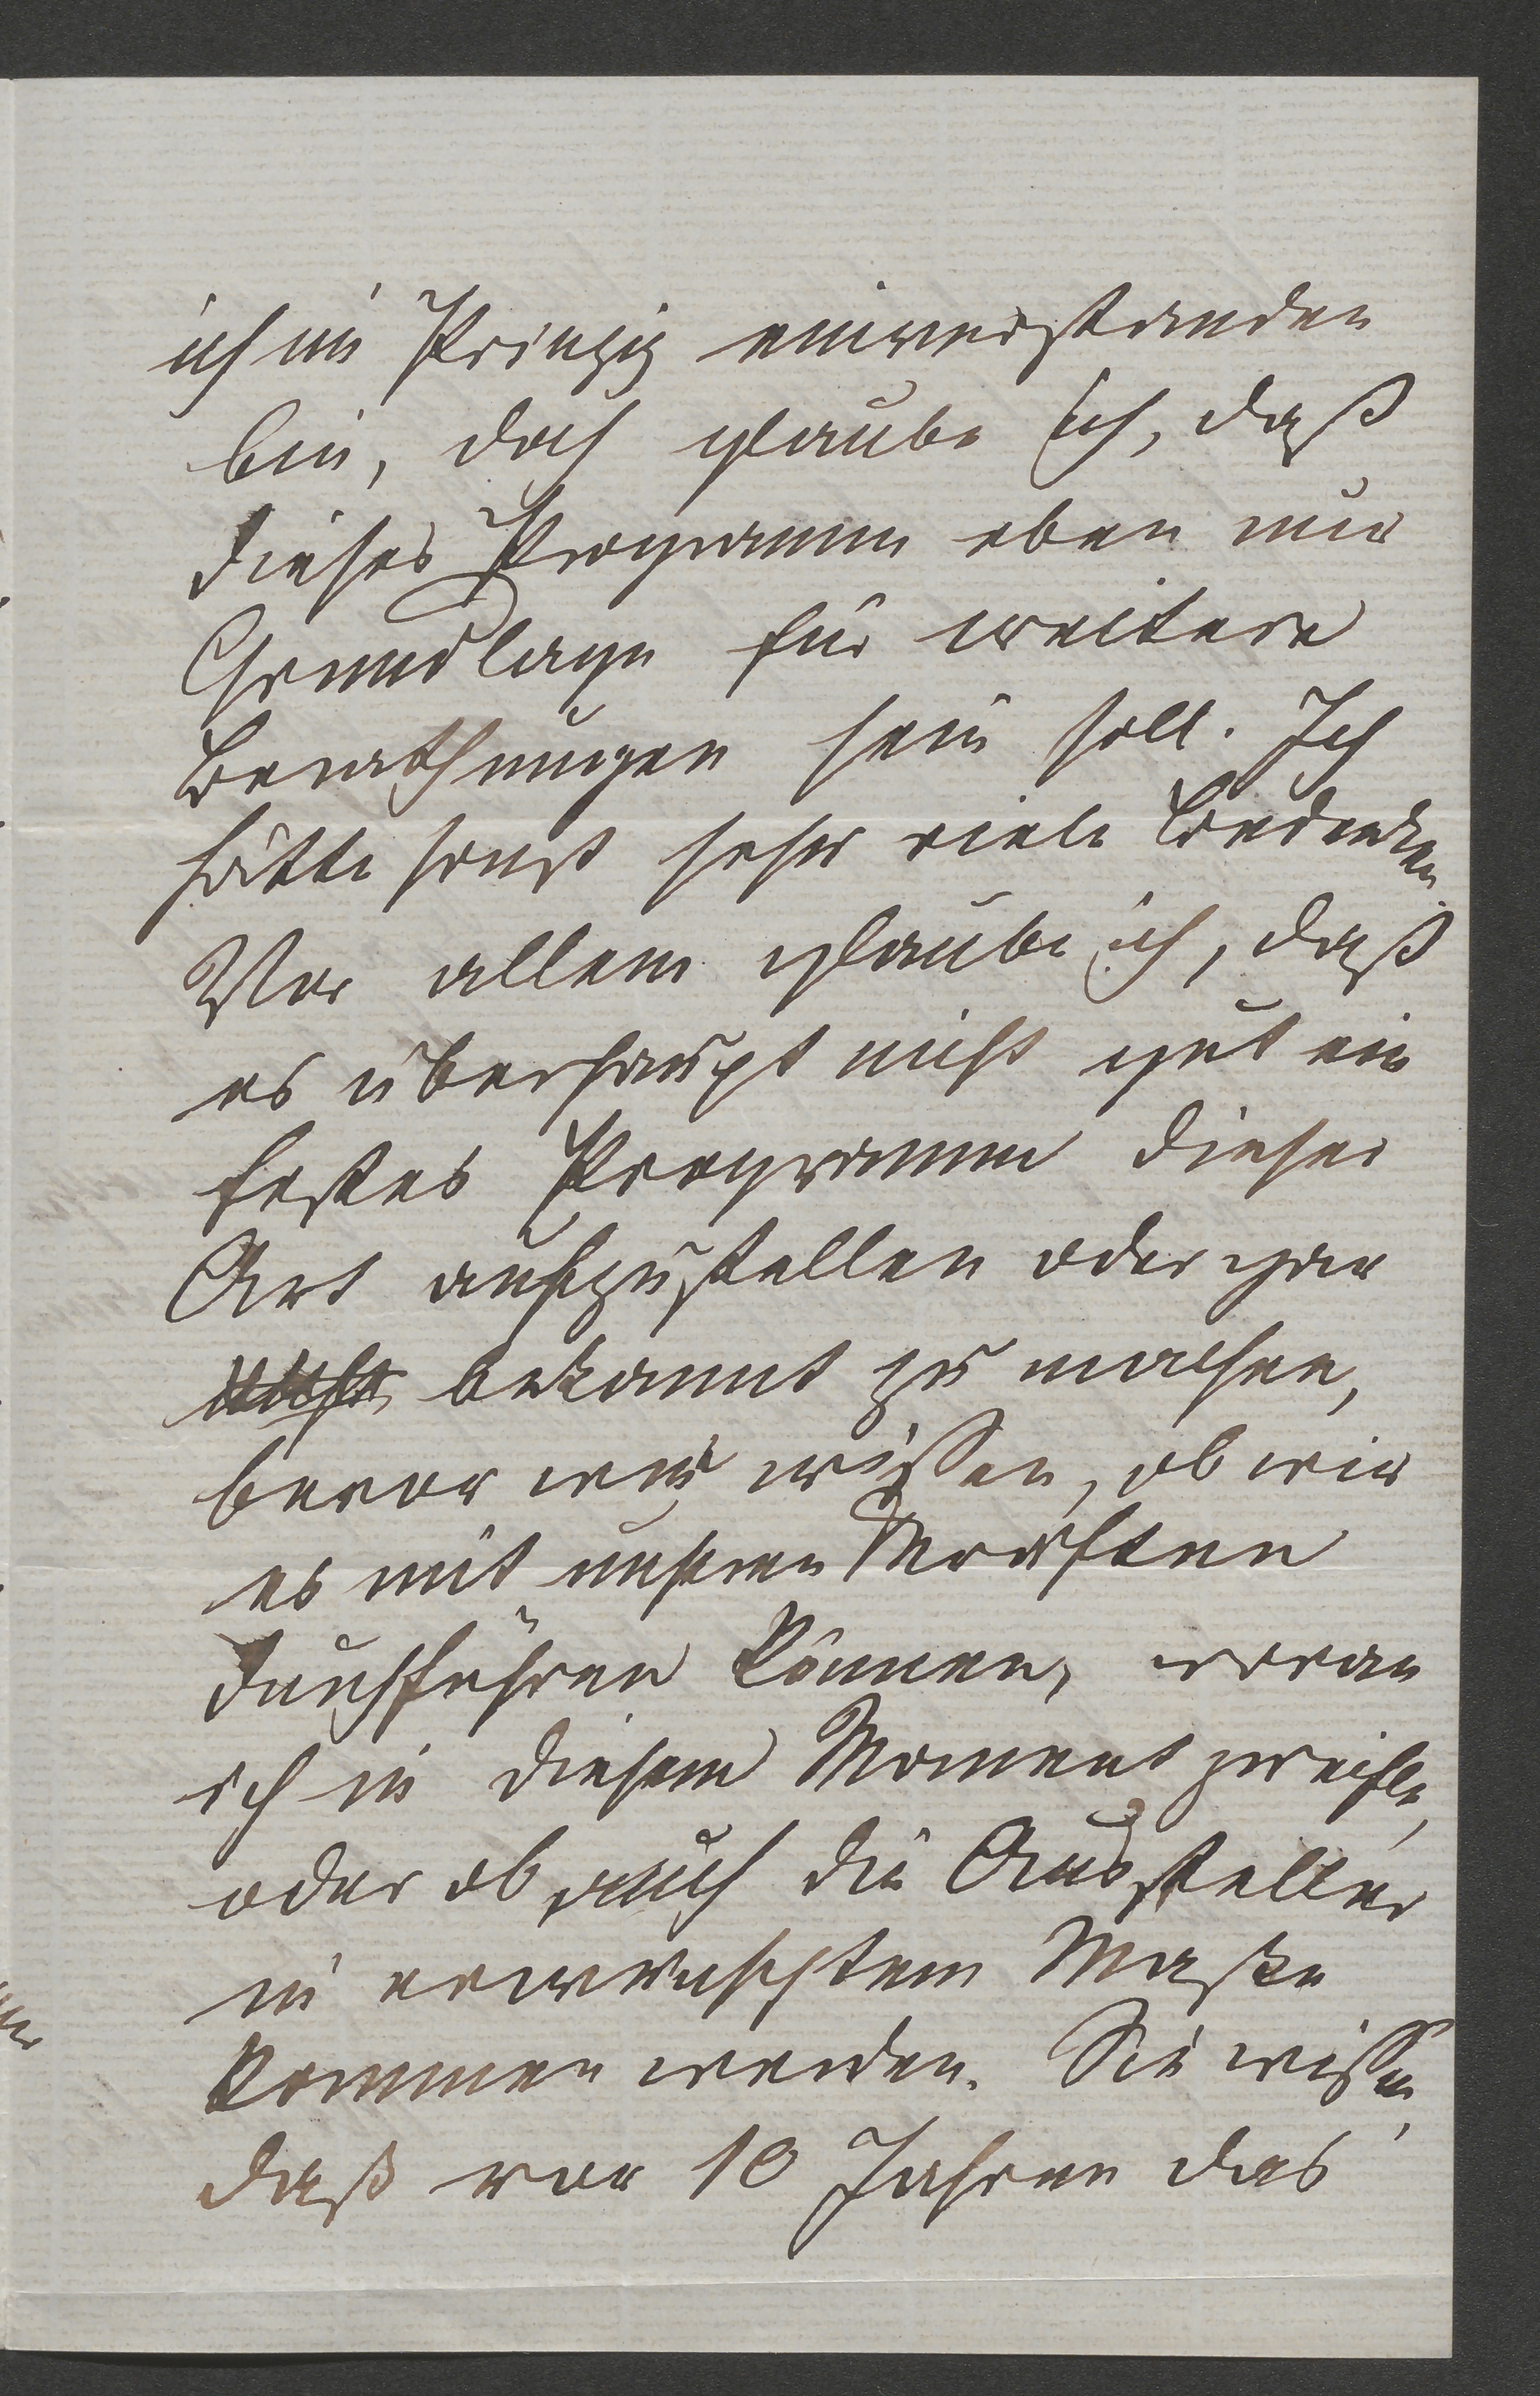 ich im Prinzip einverstanden
bin, doch glaube ich, daß
dieses Programm eben nur
Grundlage für weitere
Berathungen sein soll. Ich
hätte sonst sehr viele Bedenken.
Vor allem glaube ich, daß
es überhaupt nicht gut ein
festes Programm dieser
Art aufzustellen oder gar
bekannt zu machen,
bevor wir wissen, ob wir
es mit unseren
durchführen können, woran
ich in diesem Moment zweifle,
oder ob auch die Aussteller
in erwünschtem Maße
kommen werden. Sie wissen,
daß vor 10 Jahren das